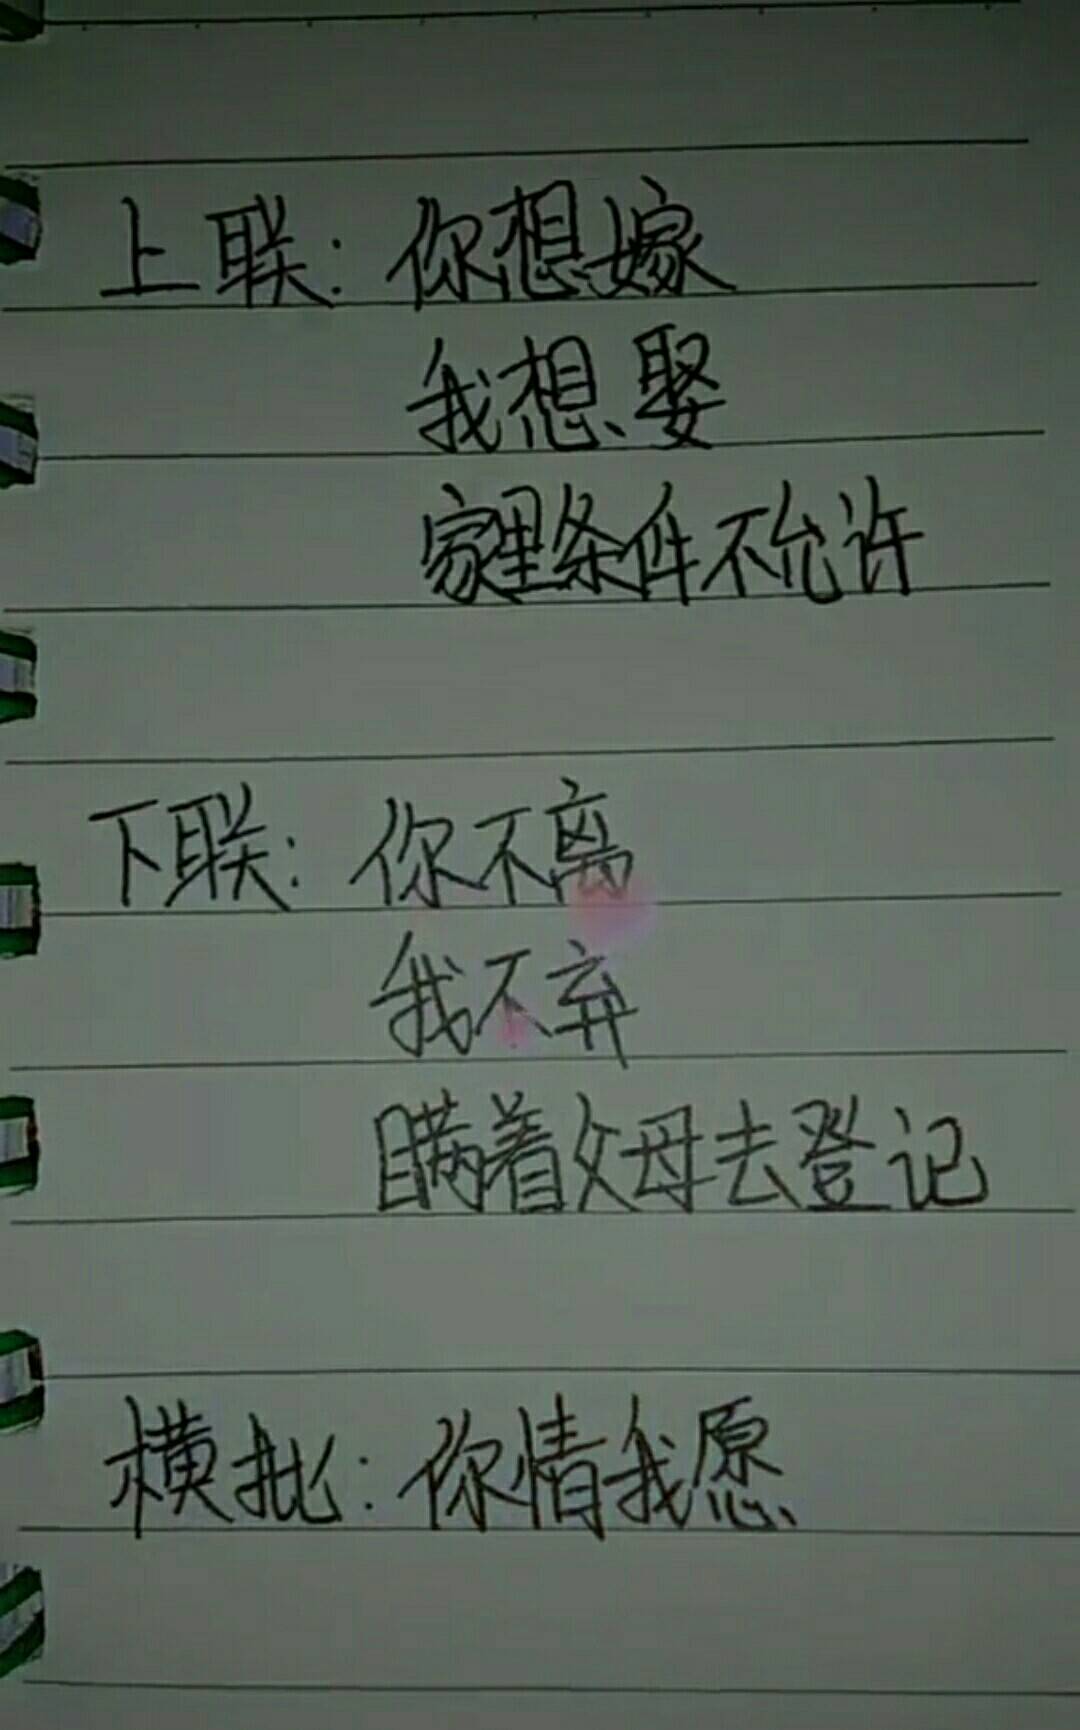 上联：你想嫁
我想娶
家里条件不允许
下联：你不离
我不弃
瞒着父母去登记
横批：你情我愿